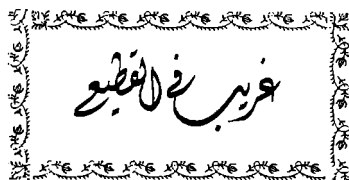 غريب في القطيع